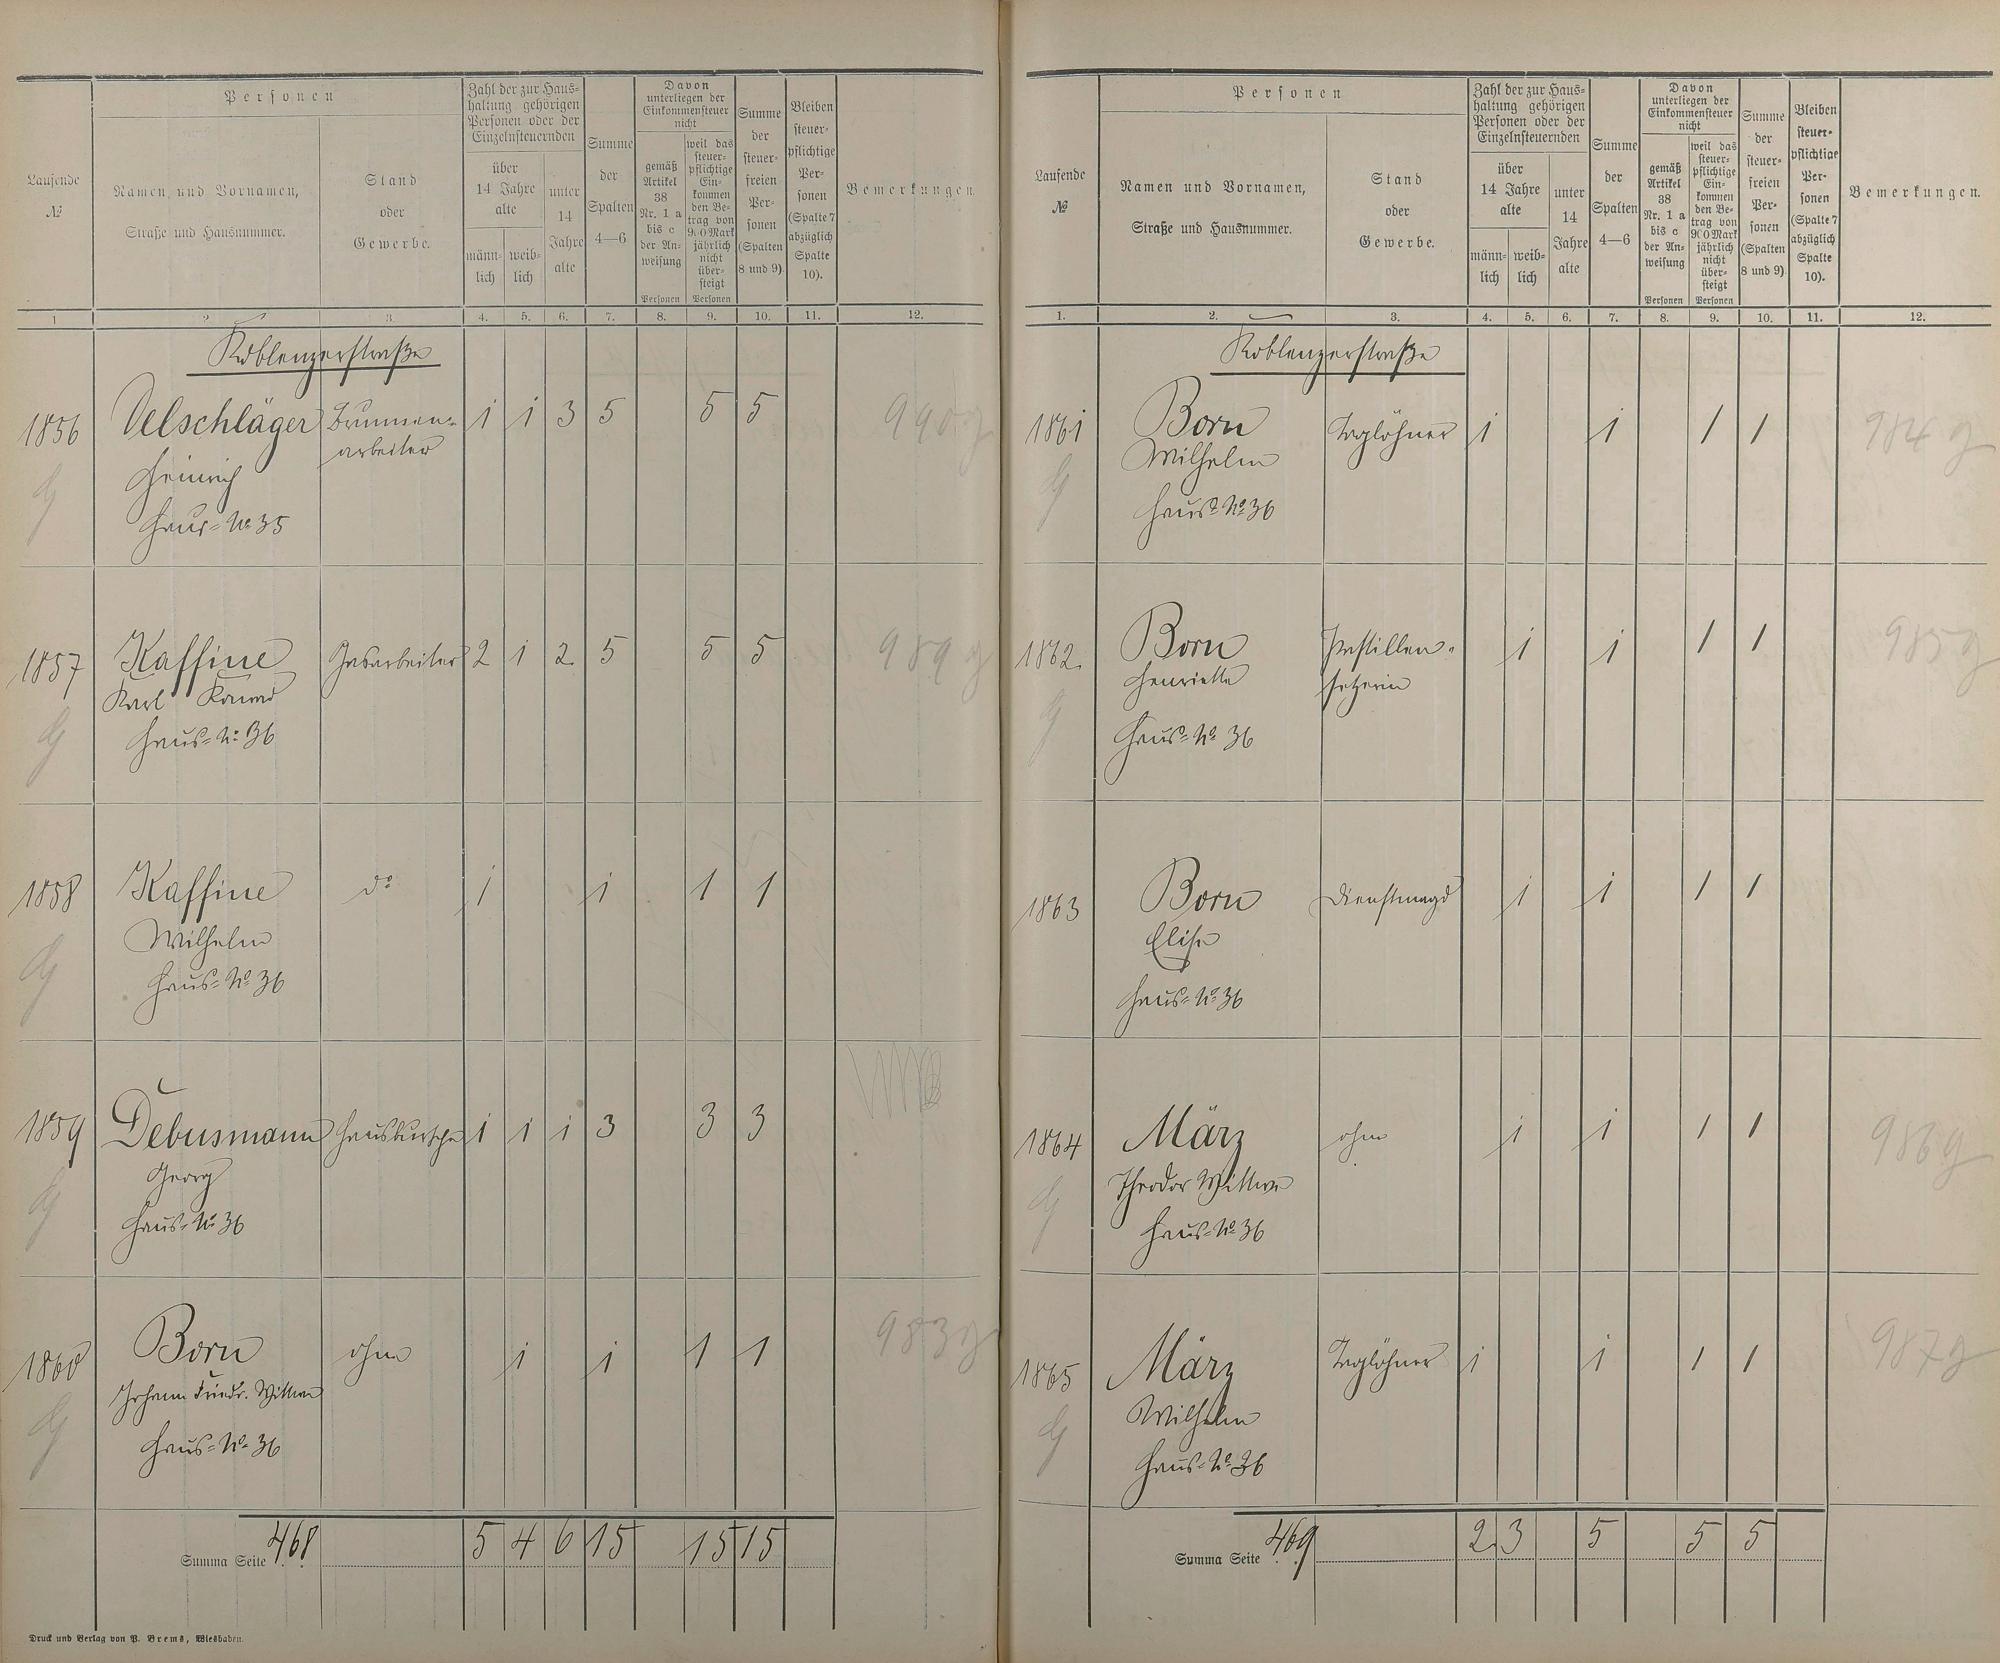 Laufende
№
Personen
Namen und Vornamen,
Straße und Hausnummer.
Stand
oder
Gewerbe.
Zahl der zur Haus-
haltung gehörigen
Personen oder der
Einzelnsteuernden
über
14 Jahre
alte
männ-
lich
weib-
lich
unter
14
Jahre
alte
Summe
der
Spalten
4—6
Davon
unterliegen der
Einkommensteuer
nicht
gemäß
Artikel
38
Nr. 1 a
bis c
der An-
weisung
Personen
weil das
steuer-
pflichtige
Ein-
kommen
den Be-
trag von
900 Mark
jährlich
nicht
über-
steigt
Personen
Summe
der
steuer-
freien
Per-
sonen
(Spalten
8 und 9)
Bleiben
steuer-
pflichtige
Per-
sonen
(Spalte 7
abzüglich
Spalte
10).
Bemerkungen.
1 2. 3. 4. 5. 6. 7. 8. 9. 10. 11. 12.
Koblenzerstraße
1856 Oelschläger Brunnen- 1 1 3 5 5 5 990 g
arbeiter
Heinrich
Haus-No 35
1857 Kaffine Gasarbeiter 2 1 2 5 5 5 989 g
Karl Konrad
Haus-No 36
1858 Kaffine do 1 1 1 1
Wilhelm
Haus-No 36
1859 Debusmann Hausbursche 1 1 1 3 3 3
Georg
Haus-No 36
1860 Born ohne 1 1 1 1 983 g
Johann Friedr. Wittwe
Haus-No 36
Summa Seite 468 5 4 6 15 15 15
Druck und Verlag von P. Brems, Wiesbaden.
Laufende
№
Personen
Namen und Vornamen,
Straße und Hausnummer.
Stand
oder
Gewerbe.
Zahl der zur Haus-
haltung gehörigen
Personen oder der
Einzelnsteuernden
über
14 Jahre
alte
männ-
lich
weib-
lich
unter
14
Jahre
alte
Summe
der
Spalten
4—6
Davon
unterliegen der
Einkommensteuer
nicht
gemäß
Artikel
38
Nr. 1 a
bis c
der An-
weisung
Personen
weil das
steuer-
pflichtige
Ein-
kommen
den Be-
trag von
900 Mark
jährlich
nicht
über-
steigt
Personen
Summe
der
steuer-
freien
Per-
sonen
(Spalten
8 und 9)
Bleiben
steuer-
pflichtige
Per-
sonen
(Spalte 7
abzüglich
Spalte
10).
Bemerkungen.
1. 2. 3. 4. 5. 6. 7. 8. 9. 10. 11. 12.
Koblenzerstraße
1861 Born Taglöhner 1 1 1 1 984 g
Wilhelm
Haus-No 36
1862 Born Pastillen- 1 1 1 1 985 g
Henriette setzerin
Haus-No 36
1863 Born Dienstmagd 1 1 1 1
Elise
Haus-No 36
1864 März ohne 1 1 1 1 986 g
Theodor Wittwe
Haus-No 36
1865 März Taglöhner 1 1 1 1 987 g
Wilhelm
Haus-No 36
Summa Seite 469 2 3 5 5 5